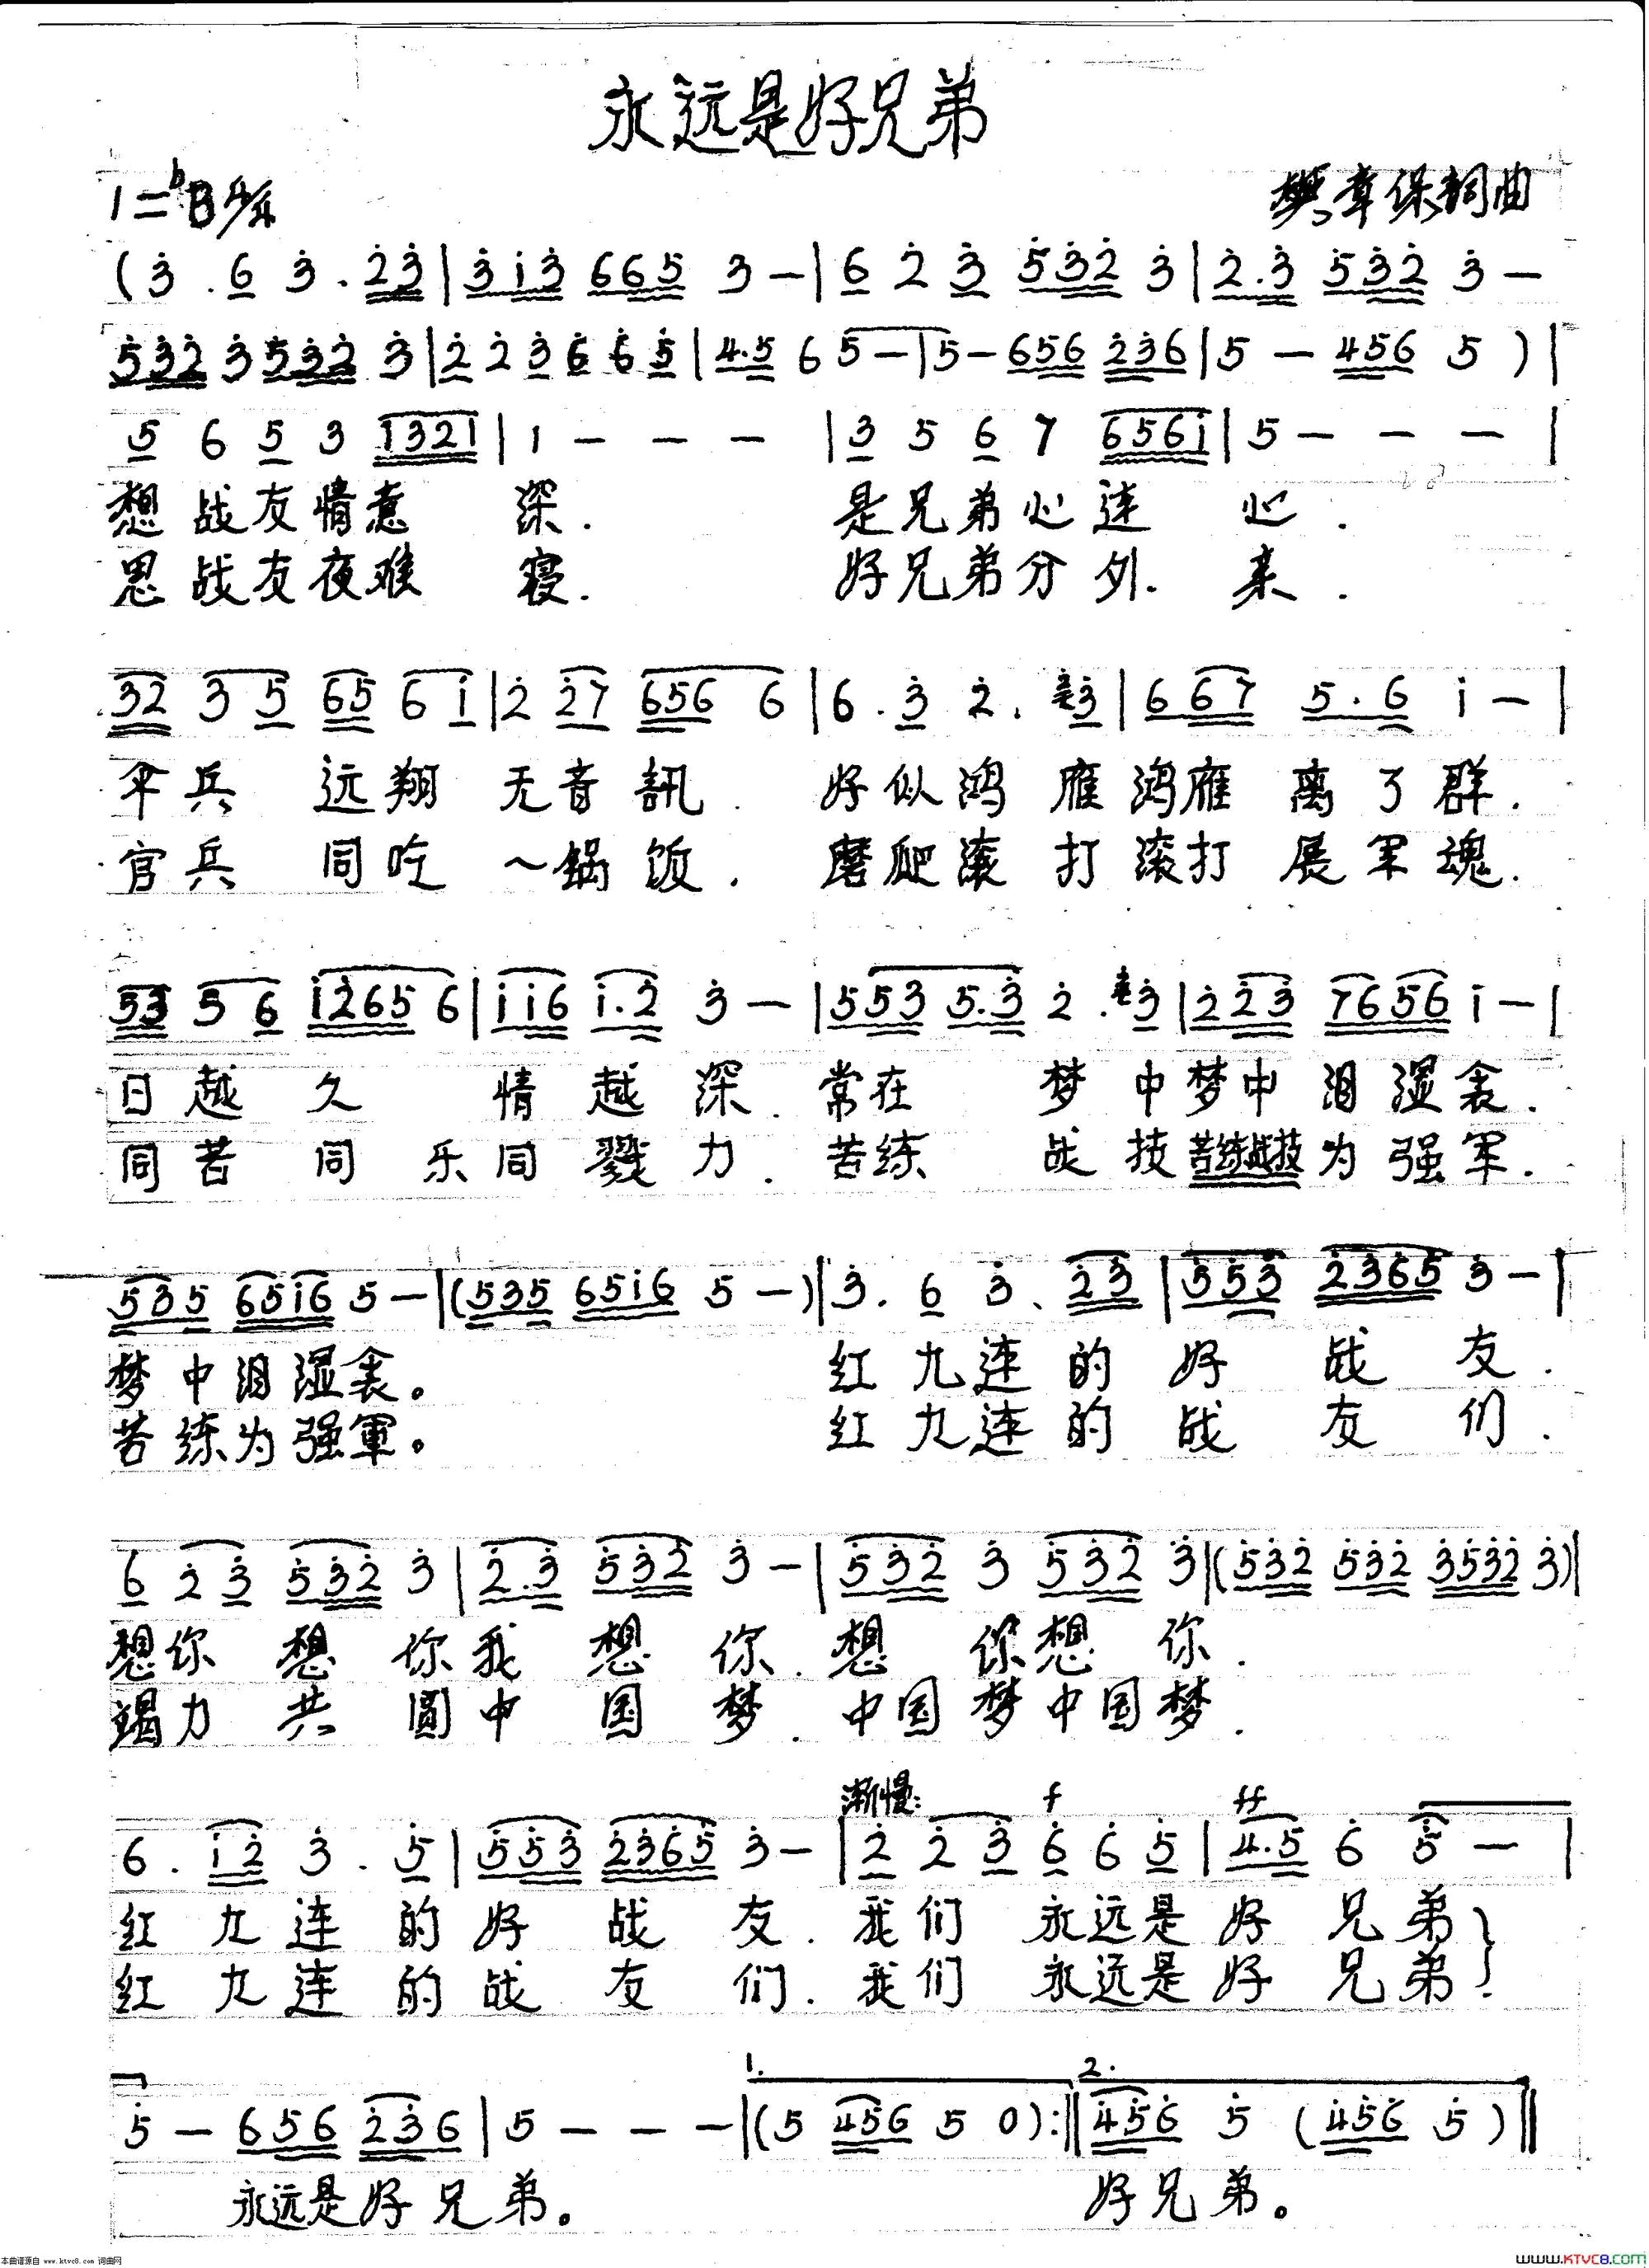 永远是好兄弟
1=♭B 4/4
樊章保词曲
(3̇ . 6 3̇ . 2̇3̇ | 3̇i3̇ 665 3 — | 6 2̇ 3̇ 5̇3̇2̇ 3̇ | 2̇.3̇ 5̇3̇2̇ 3̇ —
5̇3̇2̇ 3̇ 5̇3̇2̇ 3̇ | 2̇ 2̇ 3̇ 6̇ 6̇ 5̇ | 4.5 6 5 — | 5 — 656 2̇3̇6 | 5 — 456 5 ) |
5 6 5 3 1321 | 1 — — — | 3 5 6 7 656i | 5 — — — |
想战友情意 深. 是兄弟心连 心.
思战友夜难 寝. 好兄弟分外. 亲.
32 3 5 65 6 i | 2̇ 2̇7 656 6 | 6 . 3̇ 2̇ . 3̇ | 6 67 5 . 6 i — |
伞兵 远翔 无音訊. 好似鸿 雁鸿雁 离了群.
官兵 同吃 一锅饭. 磨爬滚 打滚打 展军魂.
53 5 6 i2̇65 6 | ii6 i.2̇ 3̇ — | 553 5.3̇ 2̇ . 3̇ | 2̇2̇3̇ 7656 i — |
日越久 情越深. 常在 梦中梦中 泪湿衾.
同苦同乐同戮力. 苦练 战技苦练战技为强军.
535 65i6 5 — | (535 65i6 5 —) | 3̇. 6 3̇. 2̇3̇ | 5̇5̇3̇ 2̇3̇6̇5̇ 3̇ — |
梦中泪湿衾。 红九连的好战友.
苦练为强軍。 红九连的战友们.
6 2̇ 3̇ 5̇3̇2̇ 3̇ | 2̇.3̇ 5̇3̇2̇ 3̇ — | 5̇3̇2̇ 3̇ 5̇3̇2̇ 3̇ | (5̇3̇2̇ 5̇3̇2̇ 3̇5̇3̇2̇ 3̇) |
想你想你我想你. 想你想你.
竭力共圆中国梦. 中国梦中国梦.
渐慢: f ff
6 . i2̇ 3̇ . 5̇ | 5̇5̇3̇ 2̇3̇6̇5̇ 3̇ — | 2̇ 2̇ 3̇ 6̇ 6̇ 5̇ | 4̇.5̇ 6̇ 5̇ — |
红九连的好战友. 我们永远是好兄弟}
红九连的战友们. 我们永远是好兄弟}
1. 2.
5̇ — 656 2̇3̇6 | 5 — — — | (5 456 5 0) :‖ 4̇5̇6̇ 5̇ (4̇5̇6̇ 5̇) ‖
永远是好兄弟。 好兄弟。
本曲谱源自 www.ktvc8.com 词曲网
WWW.KTVC8.COM